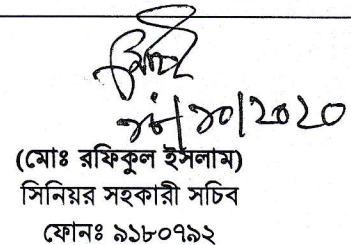 /১০/২০২০
(মোঃ রফিকুল ইসলাম)
সিনিয়র সহকারী সচিব
ফোনঃ ৯১৮০৭৯২